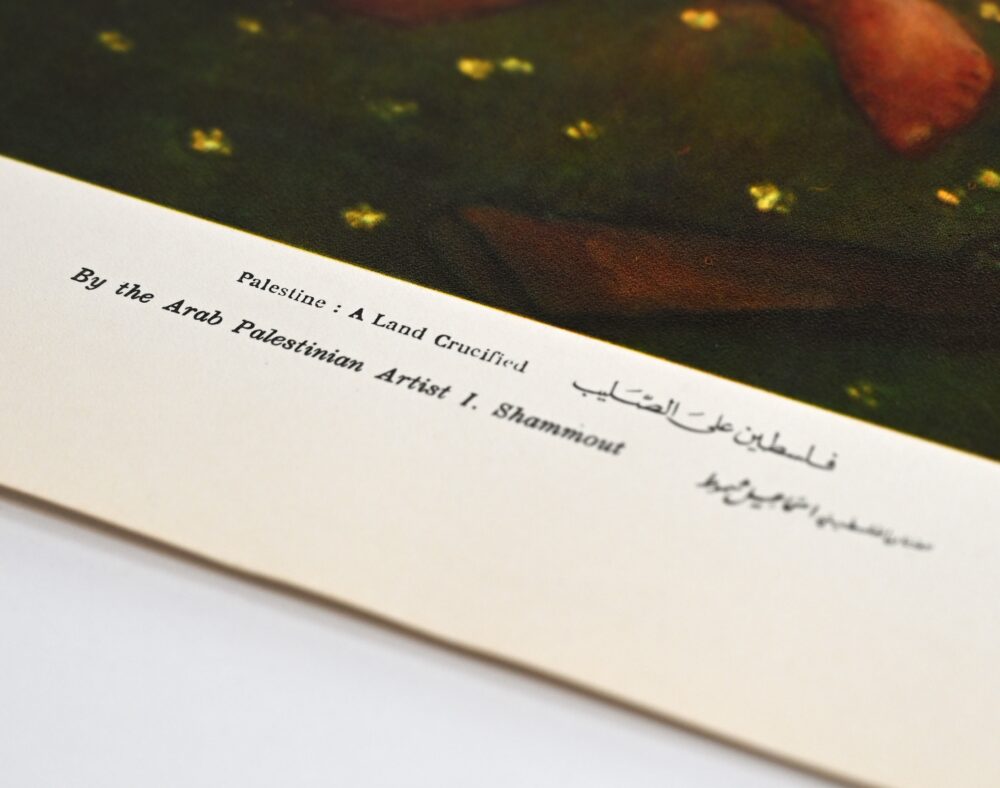 Palestine : A Land Crucified
By the Arab Palestinian Artist I. Shammout
فلسطين علىَ الصَّليب
اسماعيل شموط